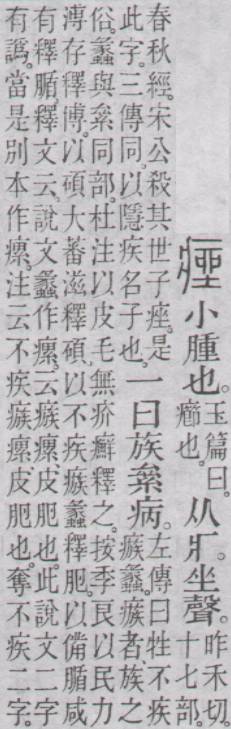 痤 小腫也。玉篇曰。癤也。从疒。坐聲。昨禾切。十七部。
春秋經。宋公殺其世子痤。是此字。三傳同。以隱疾名子也。一曰族絫病。左傳曰。牲不疾瘯蠡。瘯者、族之
俗。蠡與絫同部。杜注以皮毛無疥癬釋之。按季良以民力
溥存釋博。以碩大蕃滋釋碩。以不疾瘯蠡釋肥。以僃腯咸
有釋腯。釋文云。說文蠡作瘰。云瘯瘰、皮肥也。此說文二字
有譌。當是別本作瘰。注云不疾瘯瘰、皮肥也。奪不疾二字。